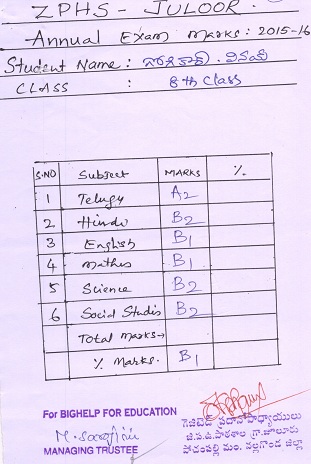 ZPHS - JULOOR.
Annual Exam Marks: 2015-16
Student Name :
CLASS : 8th Class
S.NO Subject MARKS %
1 Telugu A2
2 Hindi B2
3 English B1
4 Mathes B1
5 Science B2
6 Social Studis B2
Total Marks→
% Marks. B1
For BIGHELP FOR EDUCATION
MANAGING TRUSTEE